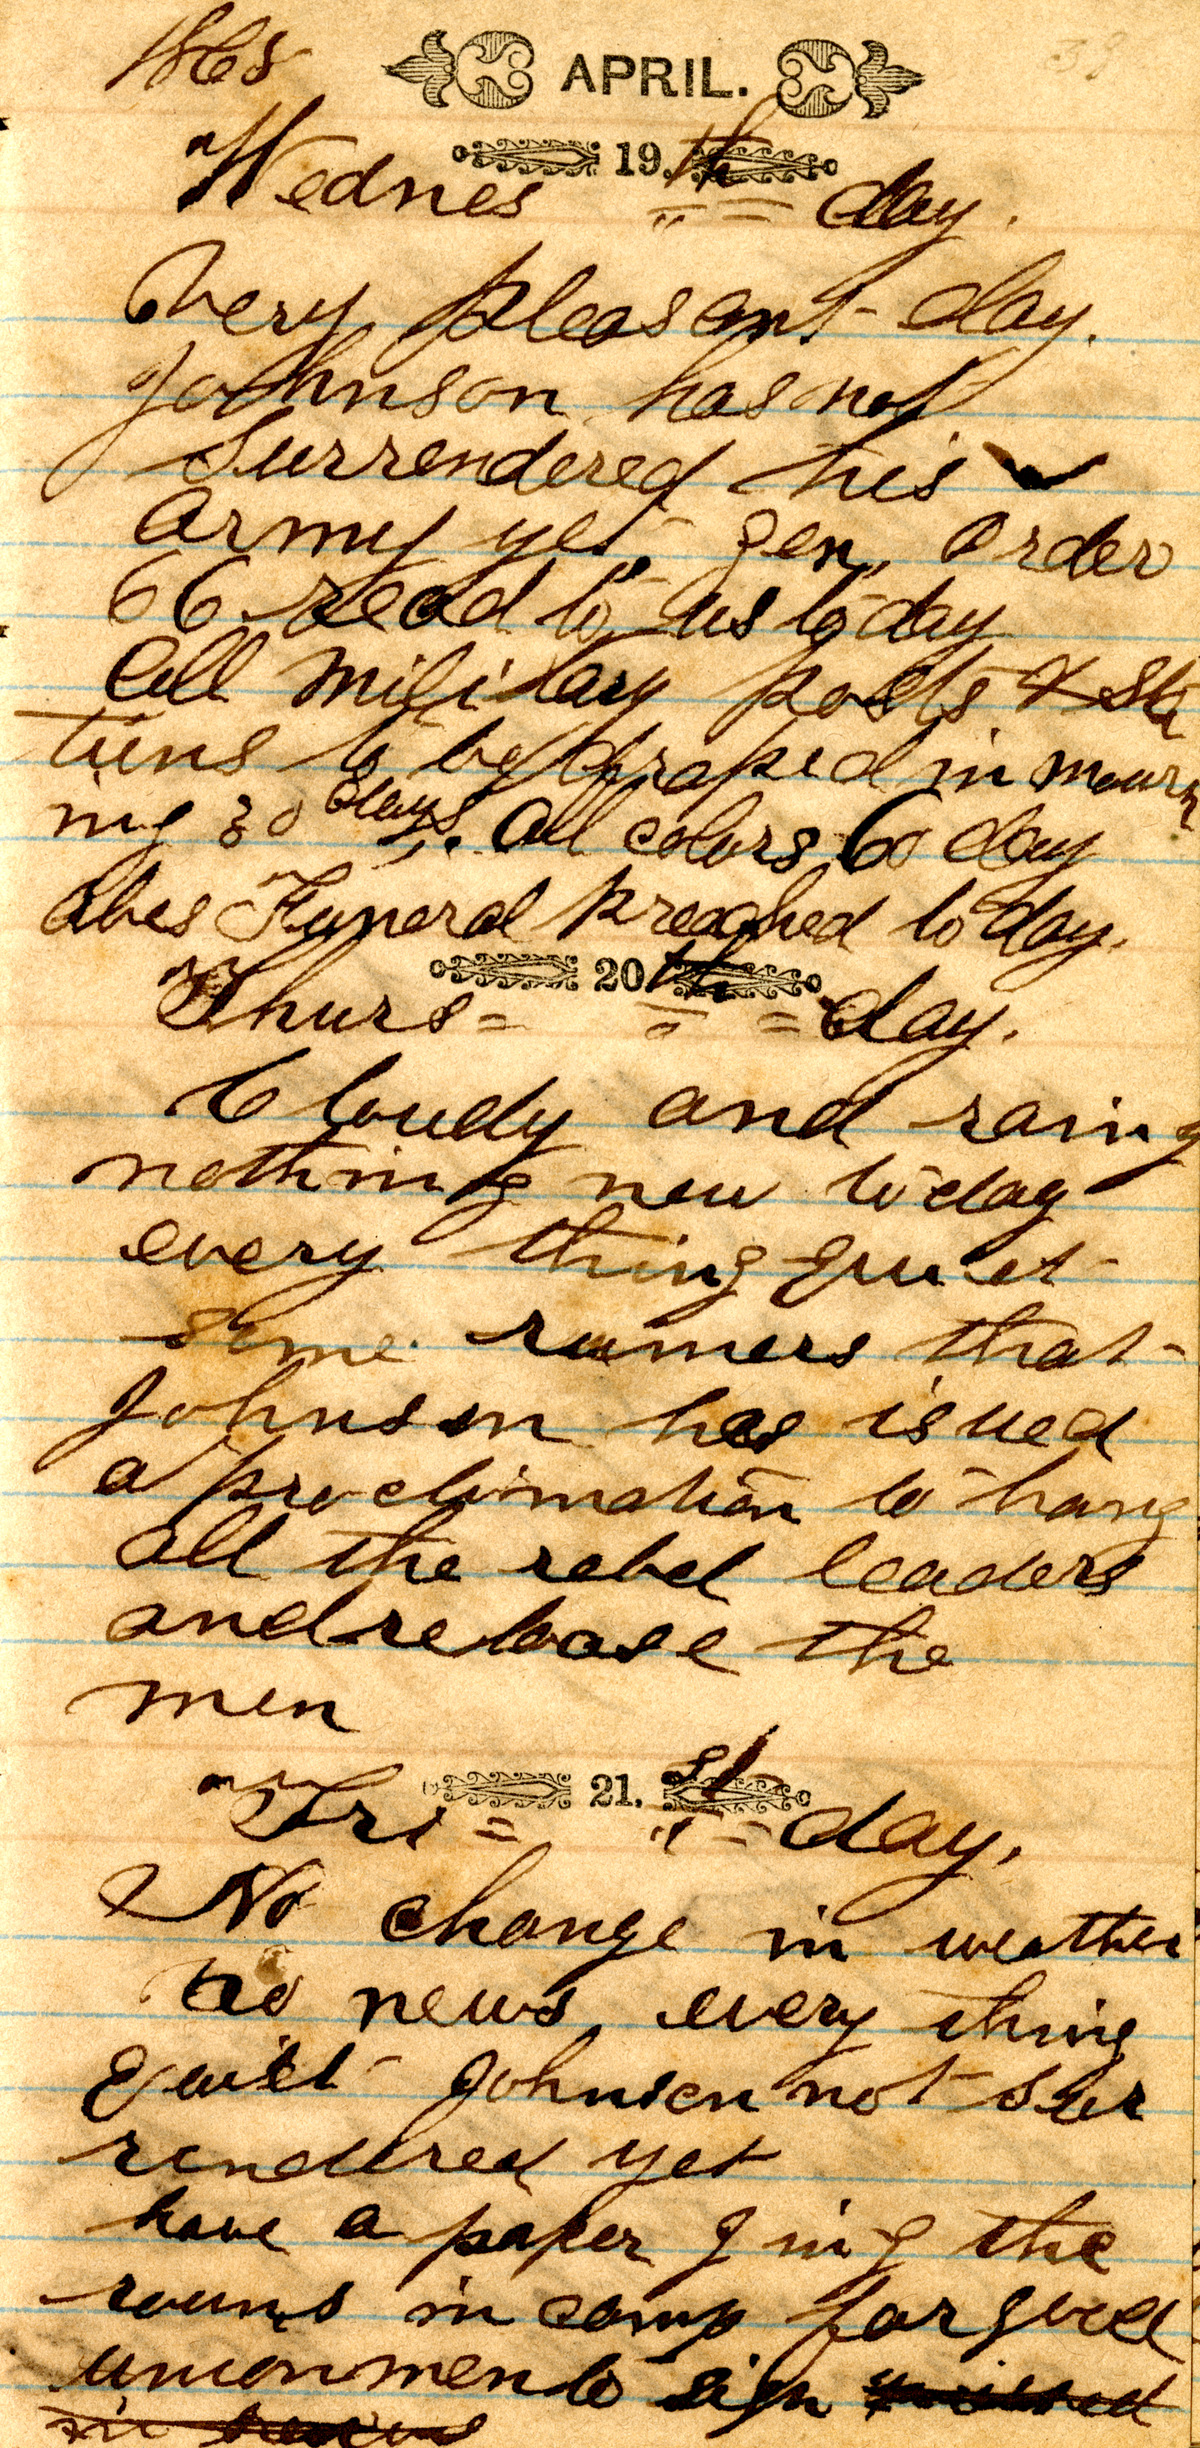 1865
APRIL.
19.th
Wednes " = day.
Very pleasant day.
Johnson has not
Surrendered his
army yet, gen, order
66 read to us to day
all military posts & sta
tions to be draped in mourn
ing 30 days. all colors 60 day
abes Funeral preached to day.
20th
Thurs= = = day.
Cloudy and rainy
nothing new to day
every thing quiet
some rumers that
Johnson has isued
a proclimation to hang
all the rebel leaders
and release the
men
21.st
Fri = " = day.
No change in weather
no news every thing
quiet Johnson not sur
rendered yet
have a paper going the
rouns in camp for good
union men to sign